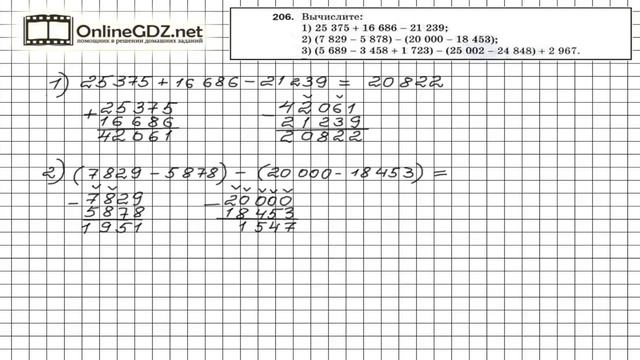 OnlineGDZ.net
помощник в решении домашних заданий
206. Вычислите:
1) 25 375 + 16 686 – 21 239;
2) (7 829 – 5 878) – (20 000 – 18 453);
3) (5 689 – 3 458 + 1 723) – (25 002 – 24 848) + 2 967.
1) 25375 + 16 686 – 21 239 = 20822
+ 25375
16686
42061
– 42061
21239
20822
2) (7829 – 5878) – (20 000 – 18453) =
– 7829
5878
1951
– 20000
18453
1547